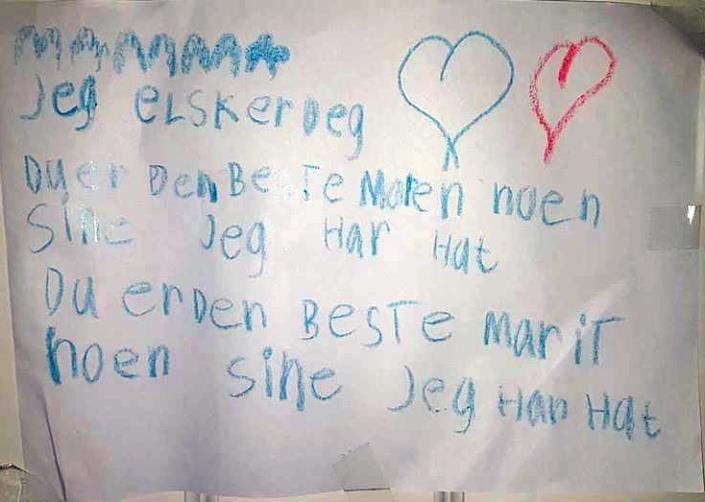 Jeg eLSKer Deg
Du er Den BeSTe Moren noen
Sine Jeg Har Hat
Du er Den BeSTe MariT
noen Sine Jeg Han Hat